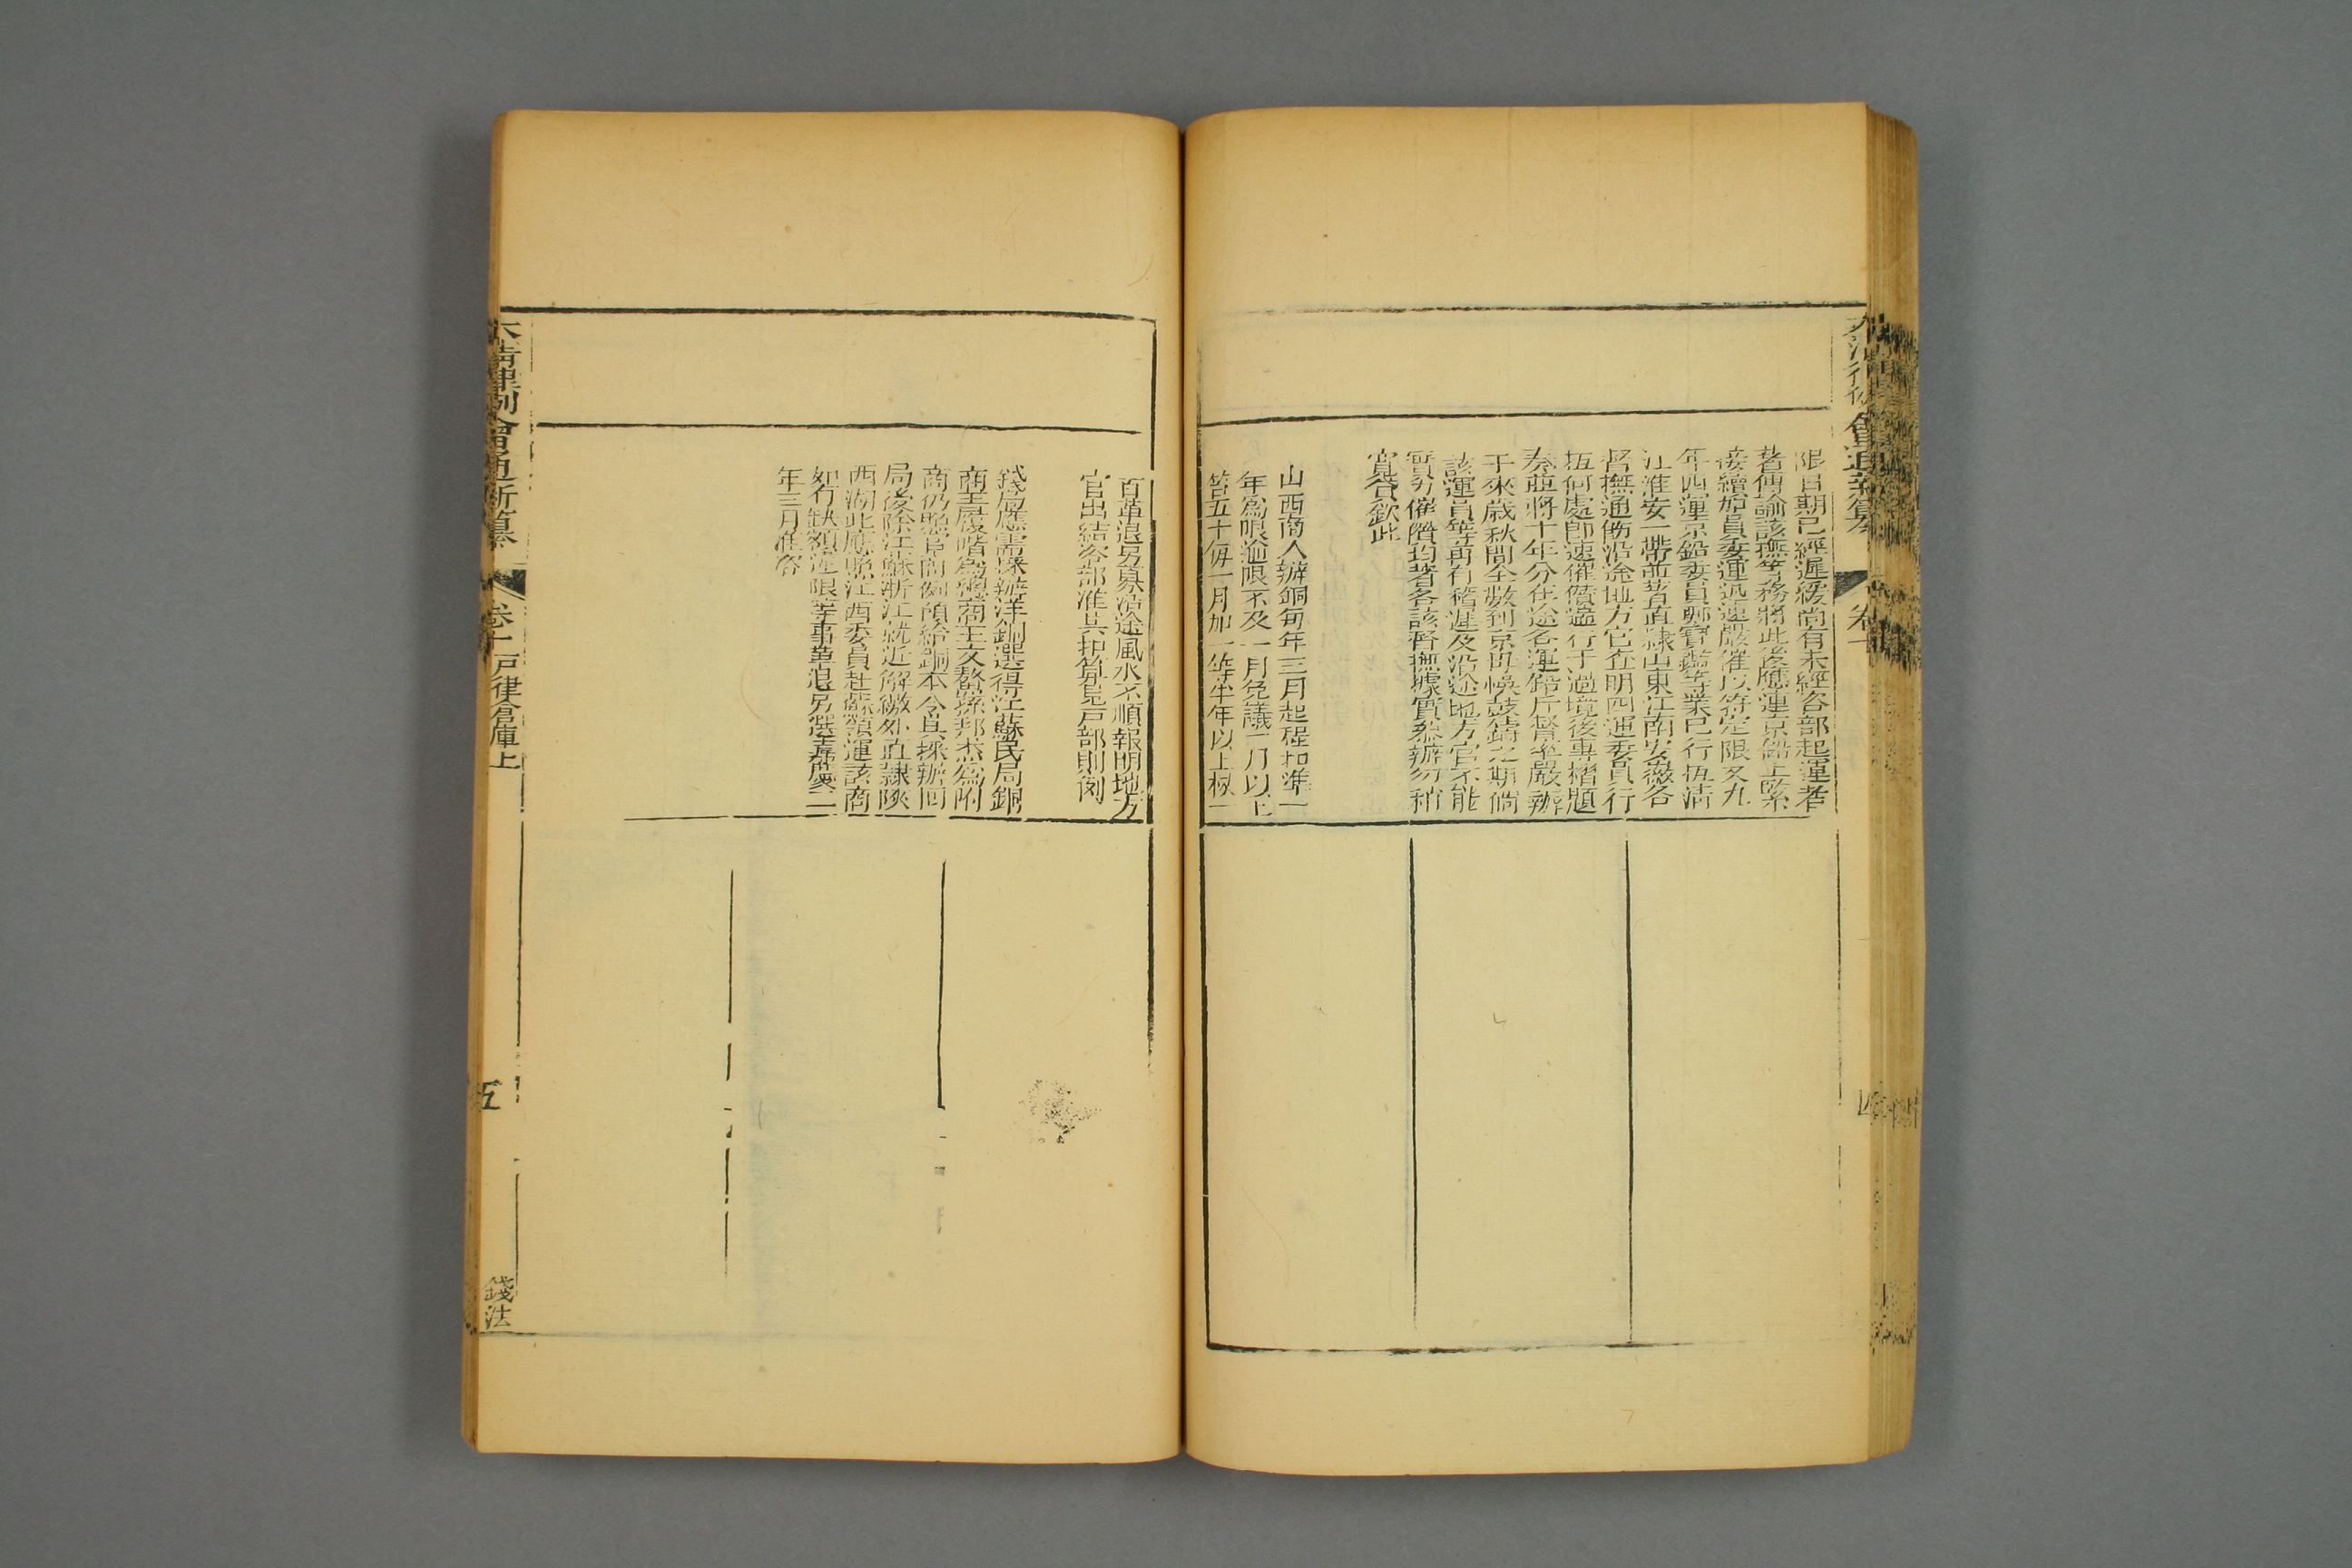 大清律例會通新纂
卷十
四
限日期已經遲緩尚有未經咨部起運者
著傳諭該撫等務將此後應運京鉛上緊
接續妲員委運迅速嚴催以符定限又九
年四運京鉛委員鄭寶鑑等業已行抵清
江淮安一帶並著直隸山東江南安徽各
督撫通飭沿途地方官查明四運委員行
抵何處即速催儹遄行于過境後專摺題
奏並將十年分在途各運鉛斤督率嚴辦
于來歲秋間全數到京毋悞鼓鑄之期倘
該運員等再有稽遲及沿途地方官不能
實力催儹均著各該督撫據實叅辦勿稍
寬貸欽此
山西商人辦銅每年三月起程扣準一
年爲限逾限不及一月免議一月以上
笞五十每一月加一等半年以上枷一
百革退另募沿途風水不順報明地方
官出結咨部准其扣算見戶部則例
錢局應需採辦洋銅選得江蘇民局銅
商王履階爲總商王文鰲孫邦杰爲附
商仍照官商例預給銅本令其採辦回
局後除江蘇浙江就近解繳外直隸陝
西湖北應照江西委員赴蘇領運該商
如有缺額逾限等事革退另選嘉慶二
年三月准咨
大清律例會通新纂
卷十戶律倉庫上
五
錢法